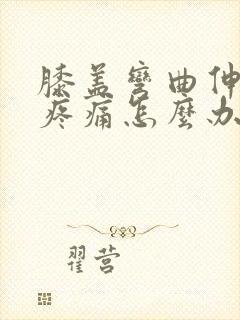 膝盖弯曲伸
疼痛怎麼办
翟营